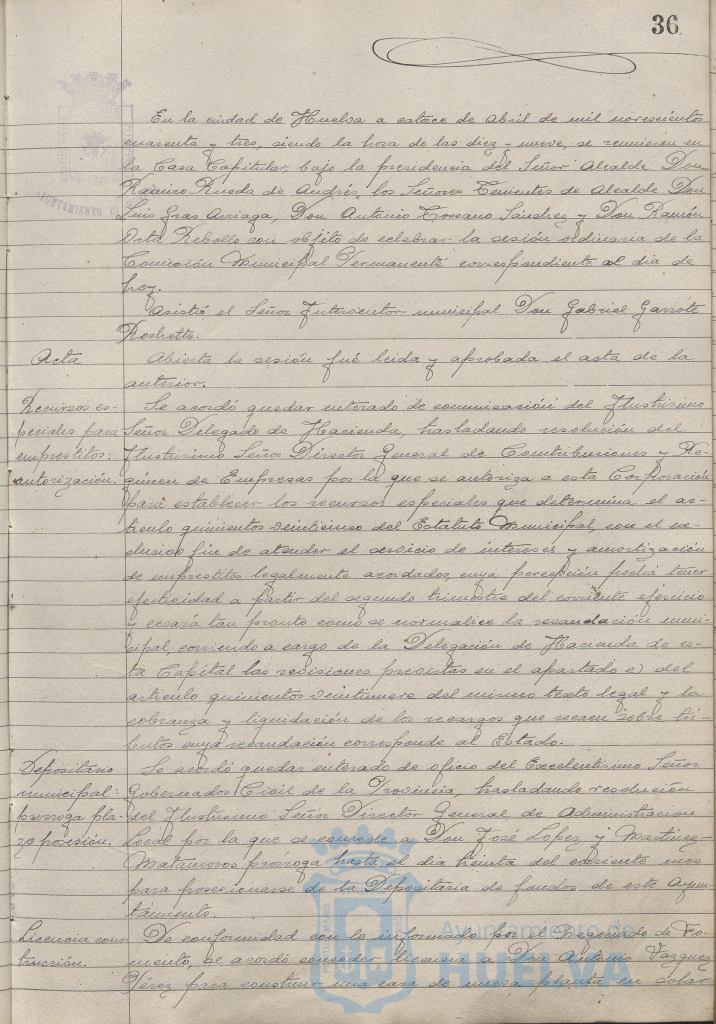 36
En la ciudad de Huelva a catorce de Abril de mil novecientos
cuarenta y tres, siendo la hora de las diez y nueve, se reunieron en
la Casa Capitular, bajo la presidencia del Señor Alcalde Don
Ramiro Rueda de Andrés, los Señores Tenientes de Alcalde Don
Luis Gras Arriaga, Don Antonio Toscano Sánchez y Don Ramón
Rebollo con objeto de celebrar la sesión ordinaria de la
Comisión Municipal Permanente correspondiente al dia de
hoy.
Asistió el Señor Interventor municipal Don Gabriel Garrote
Acta
Abierta la sesión fué leida y aprobada el acta de la
anterior.
Recursos es-
peciales para
emprestitos:
autorización.
Se acordó quedar enterado de comunicación del Ilustrisimo
Señor Delegado de Hacienda, trasladando resolución del
Ilustrisimo Señor Director General de Contribuciones y Ré-
gimen de Empresas por la que se autoriza a esta Corporación
para establecer los recursos especiales que determina el ar-
tículo quinientos veinticinco del Estatuto Municipal, con el ex-
clusivo fin de atender el servicio de intereses y amortización
de emprestitos legalmente acordados, cuya percepción podrá tener
efectividad a partir del segundo trimestre del corriente ejercicio
y cesará tan pronto como se normalice la recaudación muni-
cipal, corriendo a cargo de la Delegación de Hacienda de es-
ta Capital las revisiones previstas en el apartado e) del
articulo quinientos veintinueve del mismo texto legal y la
cobranza y liquidación de los recargos que recaen sobre tri-
butos cuya recaudación corresponde al Estado.
Depositario
municipal:
prórroga pla-
zo posesión.
Se acordó quedar enterado de oficio del Excelentisimo Señor
Gobernador Civil de la Provincia, trasladando resolución
del Ilustrisimo Señor Director General de Administracion
Local por la que se concede a Don José Lopez y Martinez-
Matamoros prórroga hasta el dia treinta del corriente mes
para posesionarse de la Depositaria de fondos de este Ayun-
tamiento.
Licencia cons-
trucción.
De conformidad con lo informado por el Negociado de Fo-
mento, se acordó conceder licencia a Don Antonio Vazquez
Pérez para construir una casa de nueva planta en solar
Ayuntamiento de
HUELVA